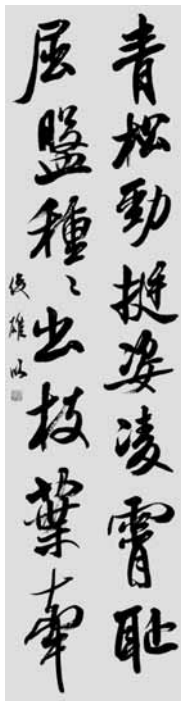 青松勁挺姿凌霄恥
屈盤種〻出枝葉牽
俊雄